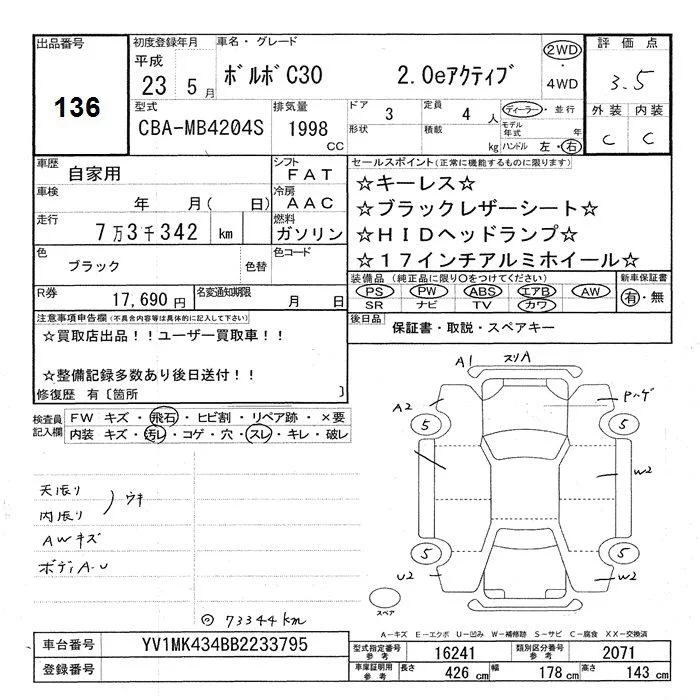 出品番号 初度登録年月 車名・グレード 2WD 評価点
136 平成 23 5月 ボルボC30 2.0eアクティブ ・ 4WD 3.5
型式 排気量 ドア 3 定員 4 人 ディーラー・並行 外装 内装
CBA-MB4204S 1998 CC 形状 積載 kg モデル年式 年 ハンドル 左・右 C C
車歴 自家用 シフト FAT セールスポイント(正常に機能するものに限ります)
車検 年 月( 日) 冷房 AAC ☆キーレス☆
走行 7万3千342 km 燃料 ガソリン ☆ブラックレザーシート☆
色 ブラック 色替 色コード ☆HIDヘッドランプ☆
☆17インチアルミホイール☆
R券 17,690円 名変通知期限 月 日 装備品(純正品に限り○をつけてください) 新車保証書
PS PW ABS エアB AW 有・無
SR ナビ TV カワ
注意事項申告欄(不具合内容等は具体的に記入して下さい) 後日品 保証書・取説・スペアキー
☆買取店出品!!ユーザー買取車!!
☆整備記録多数あり後日送付!!
修復歴 有〔箇所 〕
検査員記入欄 FW キズ・飛石・ヒビ割・リペア跡・×要
内装 キズ・汚レ・コゲ・穴・スレ・キレ・破レ
A1 スリA
A2 Pハゲ
5 5
天張り
内張り ) ウキ W2
AWキズ
ボディA.U 5 5
U2 W2
スペア
◎73344km
A-キズ E-エクボ U-凹み W-補修跡 S-サビ C-腐食 XX-交換済
車台番号 YV1MK434BB2233795 型式指定番号参考 16241 類別区分番号参考 2071
登録番号 車庫証明用参考 長さ 426 cm 幅 178 cm 高さ 143 cm